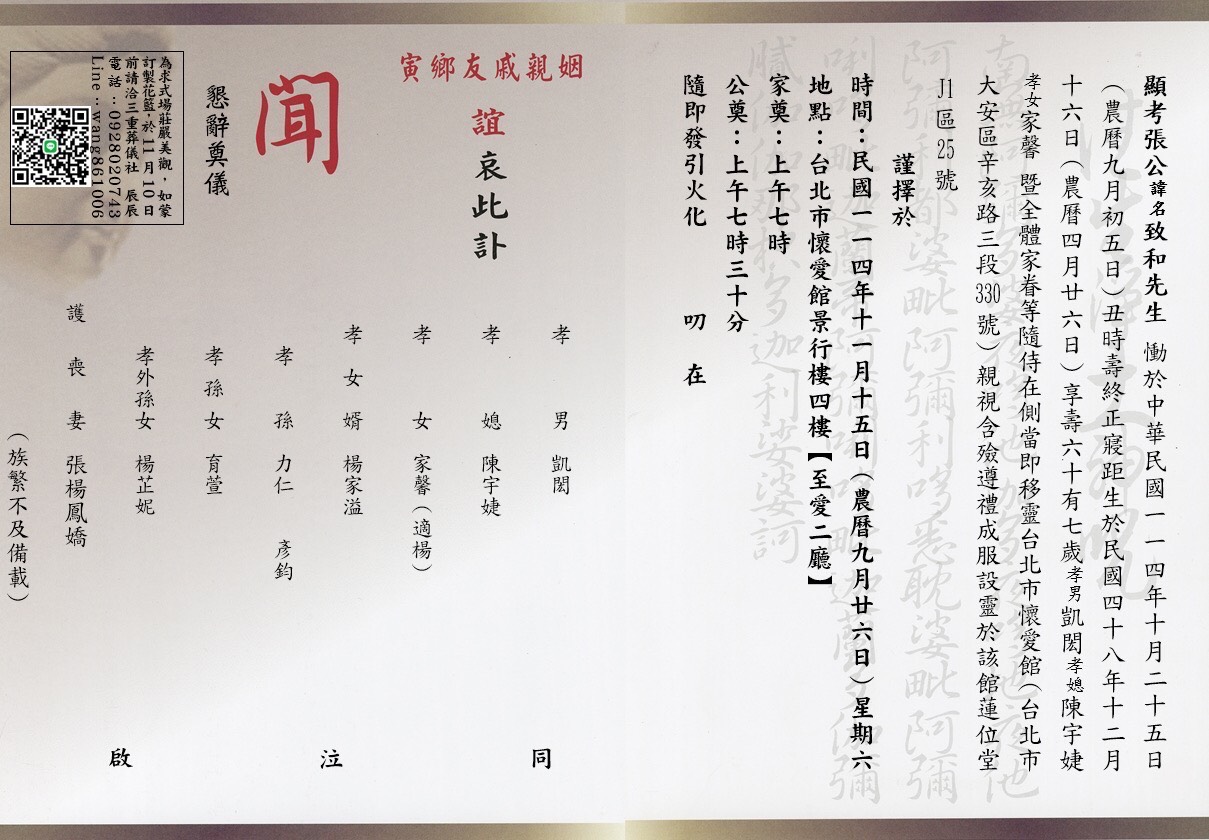 顯考張公諱名致和先生 慟於中華民國一一四年十月二十五日
(農曆九月初五日)丑時壽終正寢距生於民國四十八年十二月
十六日(農曆四月廿六日)享壽六十有七歲孝男凱閎孝媳陳宇婕
孝女家馨 暨全體家眷等隨侍在側當即移靈台北市懷愛館(台北市
大安區辛亥路三段330號)親視含殮遵禮成服設靈於該館蓮位堂
J1區25號
謹擇於
時間:民國一一四年十一月十五日(農曆九月廿六日)星期六
地點:台北市懷愛館景行樓四樓【至愛二廳】
家奠:上午七時
公奠:上午七時三十分
隨即發引火化 叨在
姻親戚友鄉寅
誼哀此訃
聞
懇辭奠儀
孝男 凱閎
孝媳 陳宇婕
孝女 家馨(適楊)
孝女婿 楊家溢
孝孫 力仁 彥鈞
孝孫女 育萱
孝外孫女 楊芷妮
護喪妻 張楊鳳嬌
(族繁不及備載)
同泣啟
為求式場莊嚴美觀,如蒙
訂製花籃,於11月10日
前請洽三重葬儀社 辰辰
電話:0928020743
Line:wang861006